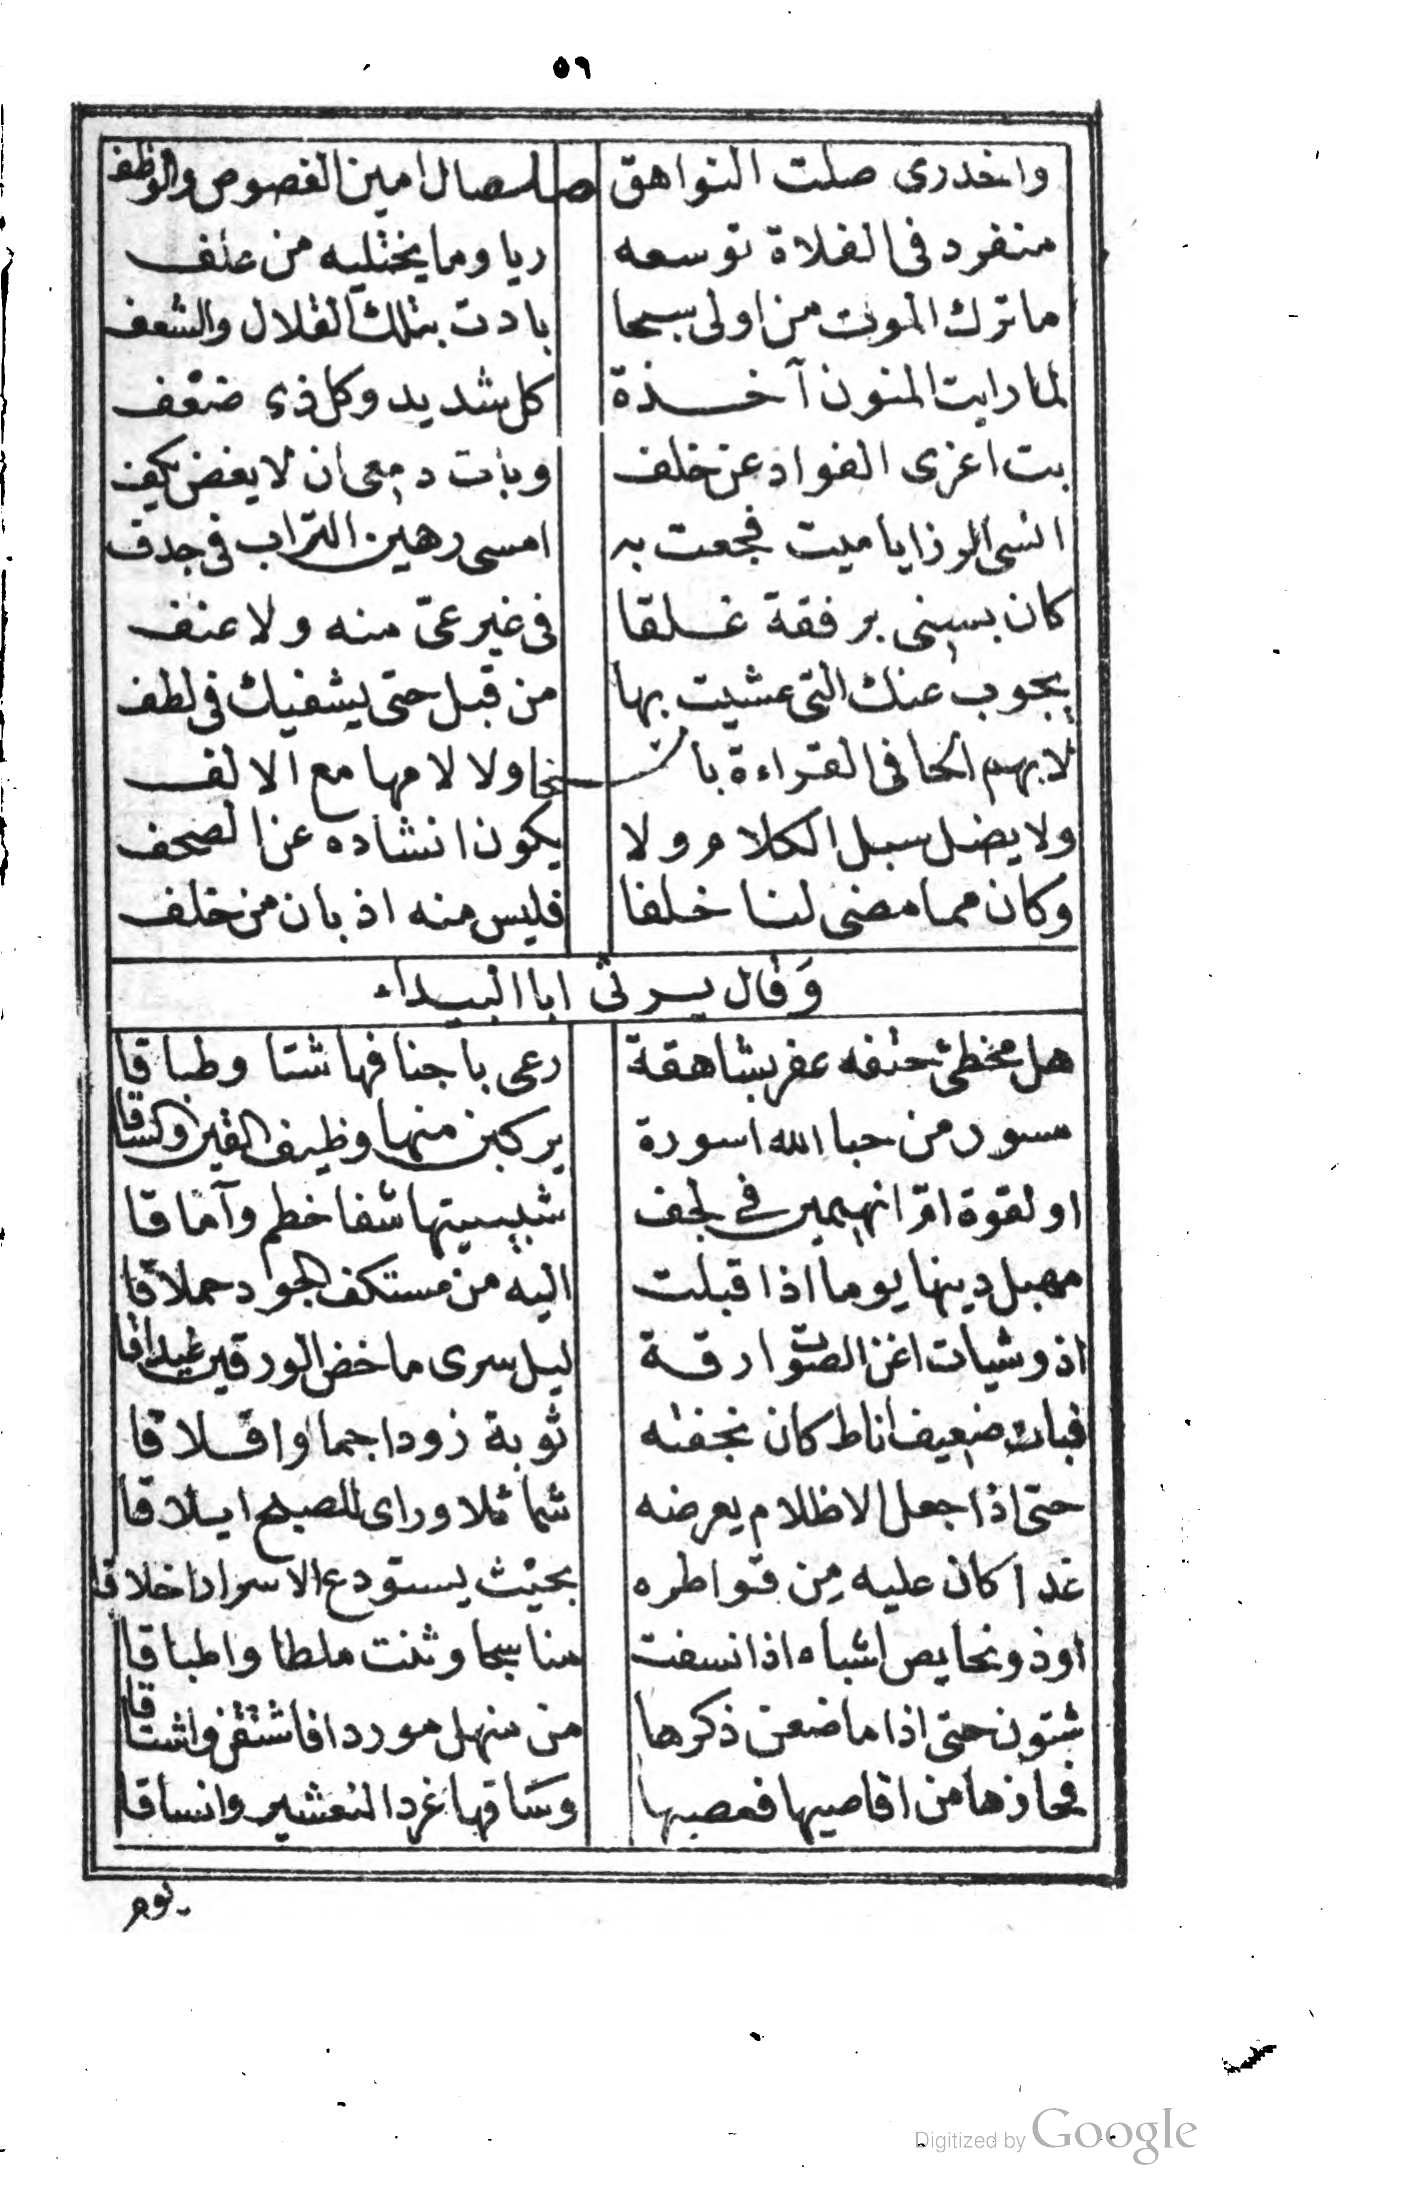 ٥٦
واخدرى صلت النواهق صلصال امين الفصوص والوظف
منفرد فى الفلاة توسعه ريا وما يختليه من علف
ما ترك الموت من اولى سبحا بادت بتلك القلال والشعف
لما رايت المنون آخذة كل شديد وكل ذى ضعف
بت اعزى الفواد عن خلف وبات دمعى ان لا يفض يكف
انسى الرزايا ميت فجعت به امسى رهين التراب فى جدف
كان يسنى برفقة غلقا فى غير عىّ منه ولا عنف
يجوب عنك التى عشيت بها من قبل حتى يشفيك فى لطف
لا يهم الحا فى القراءة بالخا ولا لامها مع الالف
ولا يضل سبل الكلام ولا يكون انشاده عن الصحف
وكان مما مضى لنا خلفا فليس منه اذ بان من خلف
وَقال يرثى ابا البيداء
هل مخطئ حتفه عفر بشاهقة رعى باجنافها شتا وطباقا
مسور من حبا الله اسورة يركبن منها وظيف القين والساقا
او لقوة امّ انهيمين فى لجف شبيبيتها شفا خطم وآماقا
مهبل دينها يوما اذا قبلت اليه من مستكف الجود حملاقا
اذو شيات اغن الصوت ارقة ليل سرى ماخض الورقين غيداقا
فبات ضعيف اناط كان نجفته ثوبة زودا جما واقلاقا
حتى اذا جعل الاظلام يعرضه شما ثلا وراى للصبح ايلاقا
غدا كان عليه من قواطره بحيث يستودع الاسرار اخلاقا
اوذو نحايص اشباه اذا نسفت مناسجا وثنت ملطا واطباقا
شتون حتى اذا ما ضعن ذكرها من منهل موردا فاشتقن واشتاقا
فحازها من اقاصيها فعصبها وسَاقها غرد التعشير وانساقا
يوم
Digitized by Google